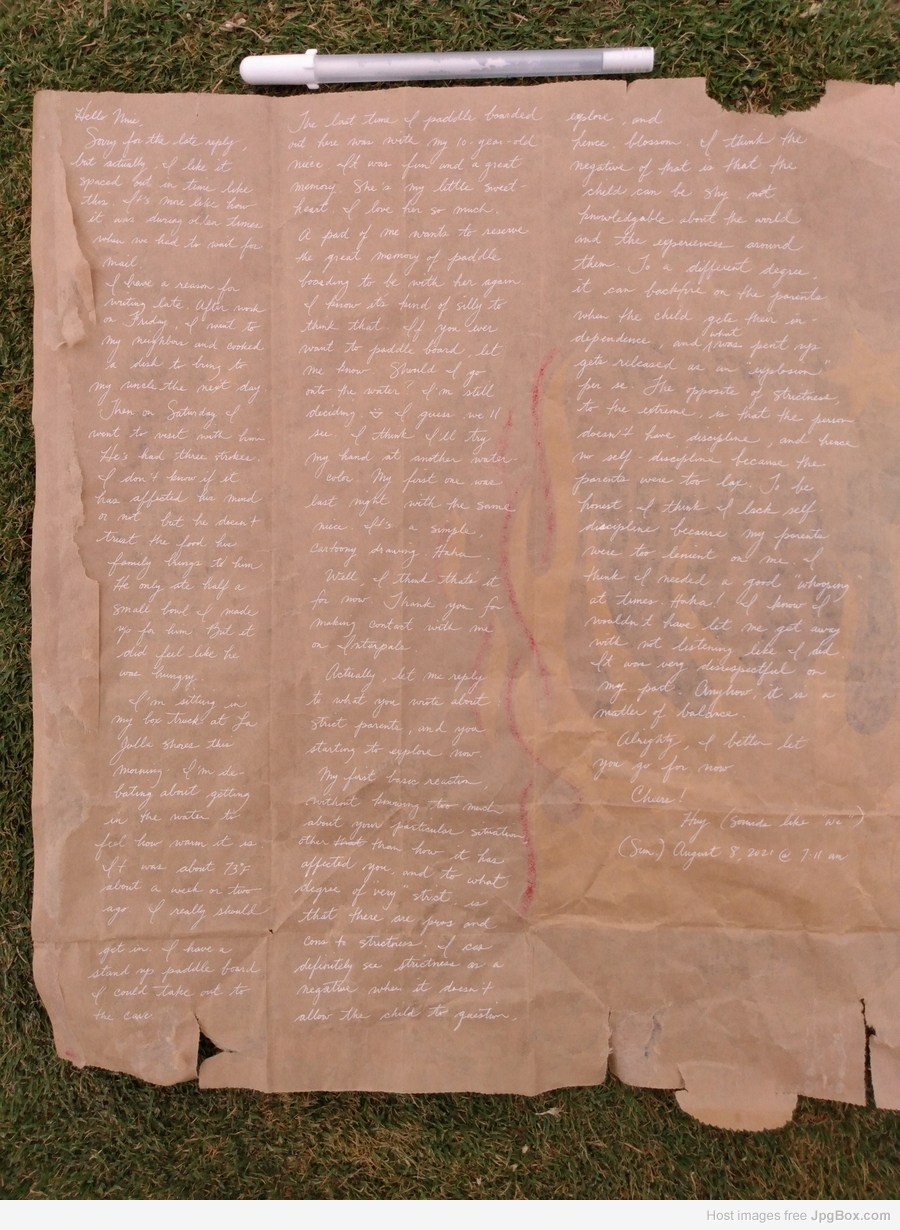 Hello
Sorry for the late reply,
but actually, I like it
spaced out in time like
this. It's more like how
it was during olden times
when we had to wait for
mail.
I have a reason for
writing late. After work
on Friday, I went to
my neighbor and cooked
a dish to bring to
my uncle the next day
Then on Saturday I
went to visit with him
He's had three strokes.
I don't know if it
has affected his mind
or not, but he doesn't
trust the food his
family brings to him
He only ate half a
small bowl I made
up for him. But it
did feel like he
was hungry.
I'm sitting in
my box truck at La
Jolla Shores this
morning. I'm de-
bating about getting
in the water to
feel how warm it is.
It was about 73°F
about a week or two
ago. I really should
get in. I have a
stand up paddle board
I could take out to
the cave.
The last time I paddle boarded
out here was with my 10-year-old
niece. It was fun and a great
memory. She's my little sweet-
heart. I love her so much.
A part of me wants to reserve
the great memory of paddle
boarding to be with her again.
I know its kind of silly to
think that. If you ever
want to paddle board, let
me know. Should I go
onto the water? I'm still
deciding. I guess we'll
see. I think I'll try
my hand at another water-
color. My first one was
last night with the same
niece. It's a simple,
cartoony drawing Haha.
Well, I think that's it
for now. Thank you for
making contact with me
on Interpals.
Actually, let me reply
to what you wrote about
strict parents, and you
starting to explore now.
My first basic reaction,
without knowing too much
about your particular situation
other than how it has
affected you, and to what
degree of "very" strict, is
that there are pros and
cons to strictness. I can
definitely see strictness as a
negative when it doesn't
allow the child to question,
explore, and
hence, blossom. I think the
negative of that is that the
child can be shy not
knowledgable about the world
and the experiences around
them. To a different degree,
it can backfire on the parents
when the child gets their in-
dependence, and what was pent up
gets released as an "explosion"
per se. The opposite of strictness,
to the extreme, is that the person
doesn't have discipline, and hence
no self-discipline because the
parents were too lax. To be
honest, I think I lack self-
discipline because my parents
were too lenient on me. I
think I needed a good "whooping"
at times. Haha! I know I
wouldn't have let me get away
with not listening like I did
It was very disrespectful on
my part. Anyhow, it is a
matter of balance.
Alrighty, I better let
you go for now
Cheers!
Huy (Sounds like
(Sun.) August 8, 2021 @ 7:11 am
Host images free JpgBox.com